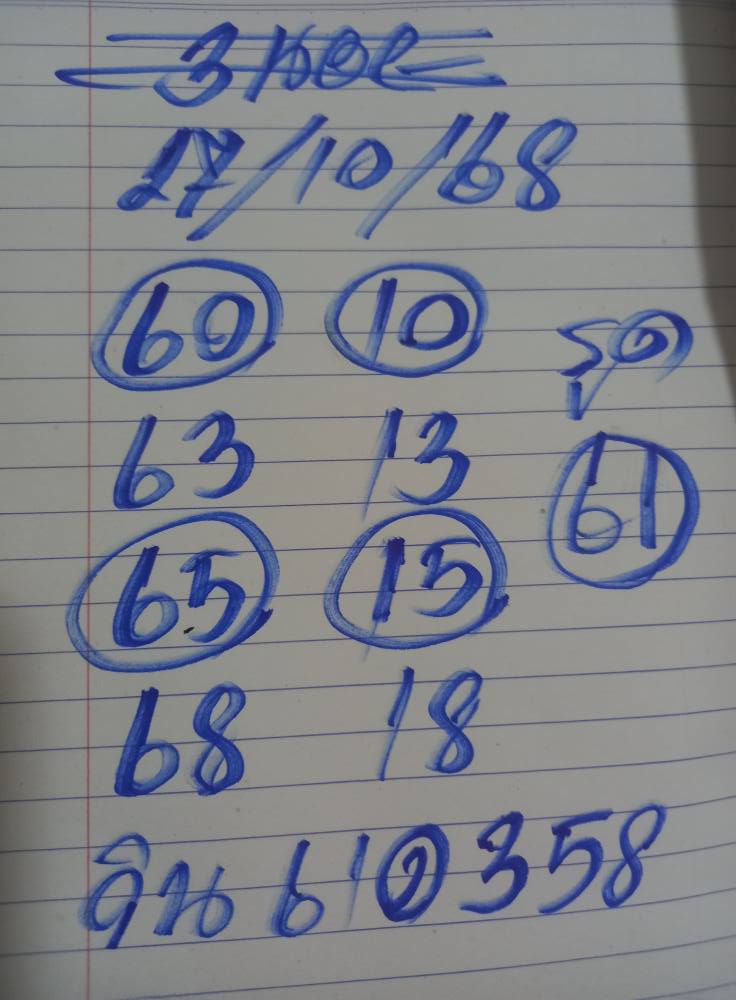 3 นอย
27/10/68
60 10
รูด
63 13
61
65 15
68 18
วิน 610358